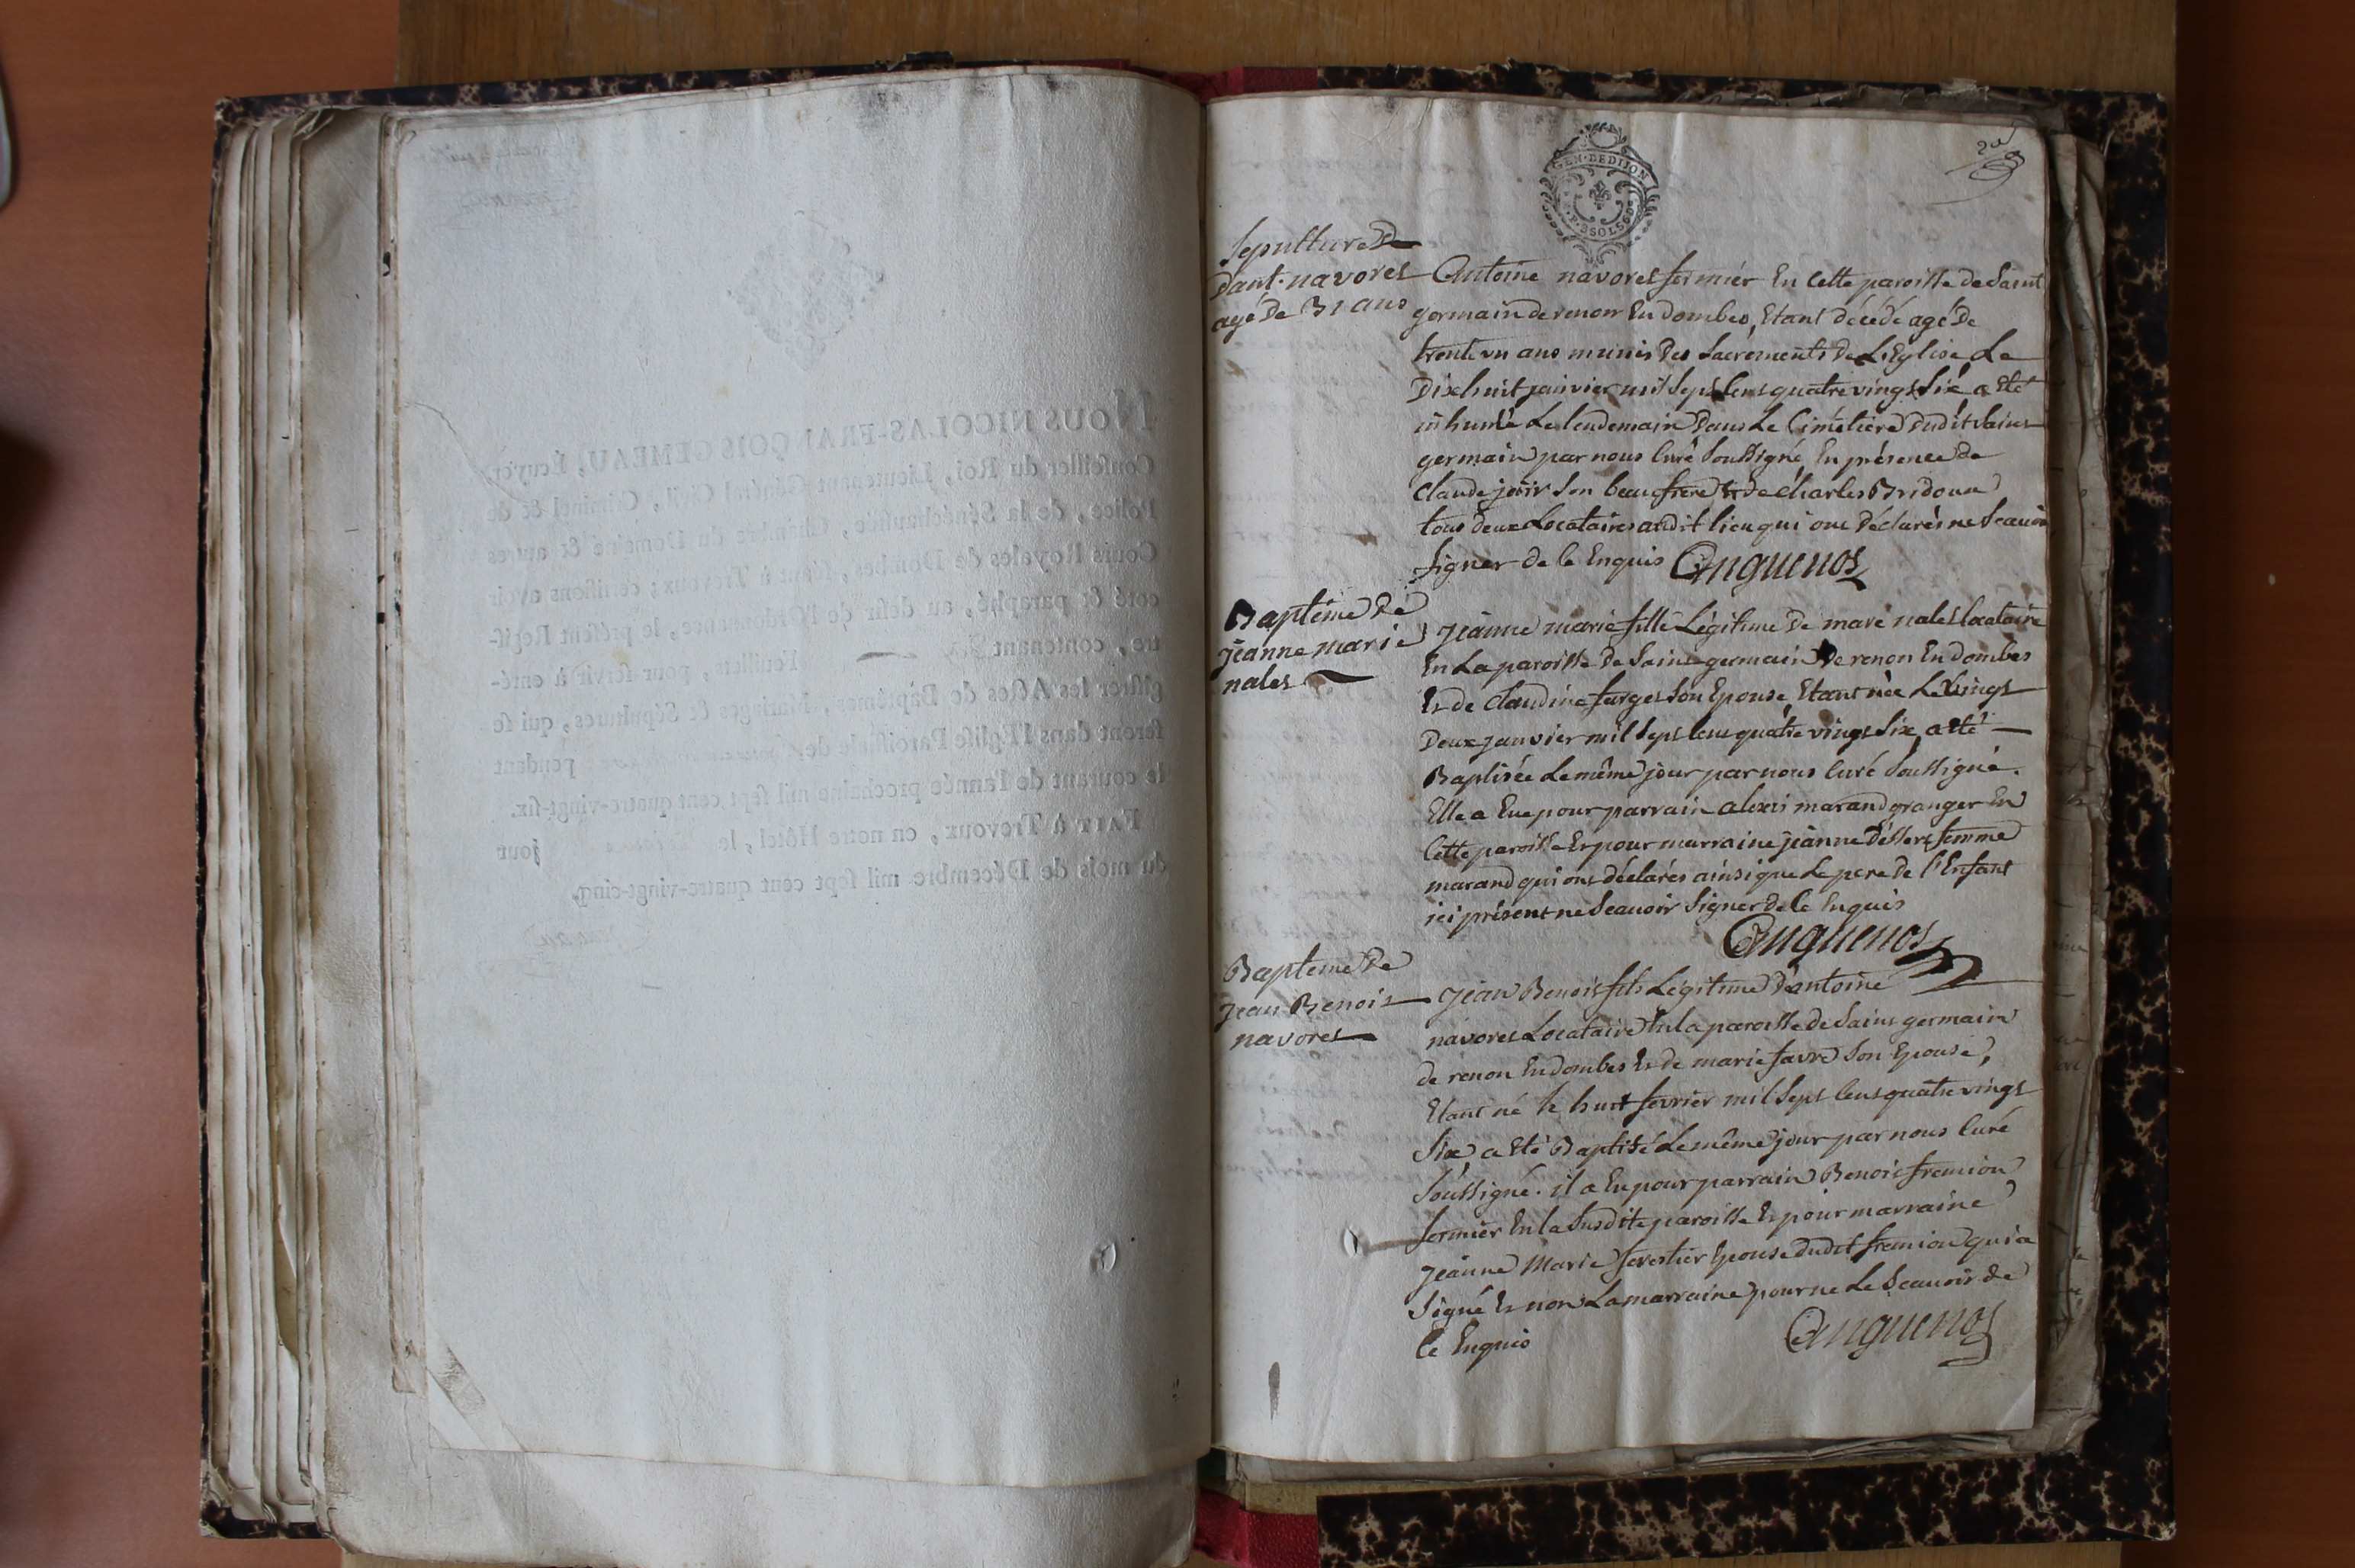 NOUS NICOLAS-FRANÇOIS GEMEAU, Ecuyer,
Conseiller du Roi, Lieutenant-Général Civil, Criminel & de
Police, de la Sénéchaussée, Chambre du Domaine & autres
Cours Royales de Dombes, séant à Trevoux; certifions avoir
coté & paraphé, au desir de l'Ordonnance, le présent Regis-
tre, contenant Feuillets, pour servir à enré-
gistrer les Actes de Baptêmes, Mariages & Sépultures, qui se
feront dans l'Eglise Paroissiale de pendant
le courant de l'année prochaine mil sept cent quatre-vingt-six.
FAIT à Trevoux, en notre Hôtel, le jour
du mois de Décembre mil sept cent quatre-vingt-cinq.
GEN·DE DIJON
Sepulture De
Dant. navores
agé De 31 ans
Antoine navores fermier En Cette paroisse de Saint
germain de renon En dombes, Etant décédé agé De
trente un ans munis Des Sacrements De L'Eglise Le
Dixhuit janvier mil Sept Cens quatre vingt Six a Eté
inhumé Le lendemain Dans Le Cimétiere Dudit Saint
germain par nous Curé Soussigné En présence de
Claude jorir Son beaufrere Et De Charles Bridoun
tous deux Locataires audit lieu qui ont Déclarés ne Scavoir
Signer de Ce Enquis Anguenos
Baptême De
jeanne marie
nales
jeanne marie fille Légitime De marc nales locataire
En La paroisse De Saint germain De renon En dombes
Et de Claudine farges Son Epouse, Etant née Le Vingt
Deux janvier mil Sept Cens quatre vingt Six, a Eté
Baptisée Le même jour par nous Curé Soussigné.
Elle a Eue pour parrain alexis marand granger En
Cette paroisse Et pour marraine jeanne Dessers femme
marand qui ont déclarés ainsi que Le pere De l'Enfant
ici présent ne Scauoir Signer De Ce Enquis
Anguenos
Baptême De
jean Benoit
navores
jean Benoit fils Légitime D'antoine
navores Locataire En la paroisse De Saint germain
de renon En dombes Et de marie favre Son Epouse,
Etant né le huit fevrier mil Sept Cens quatre vingt
Six a Eté Baptisé Le même jour par nous Curé
Soussigné. il a Eu pour parrain Benoit fremion
fermier En la Susdite paroisse Et pour marraine
jeanne Marie forestier Epouse Dudit fremion qui a
Signé Et non La marraine pour ne Le Scauoir de
Ce Enquis Anguenos